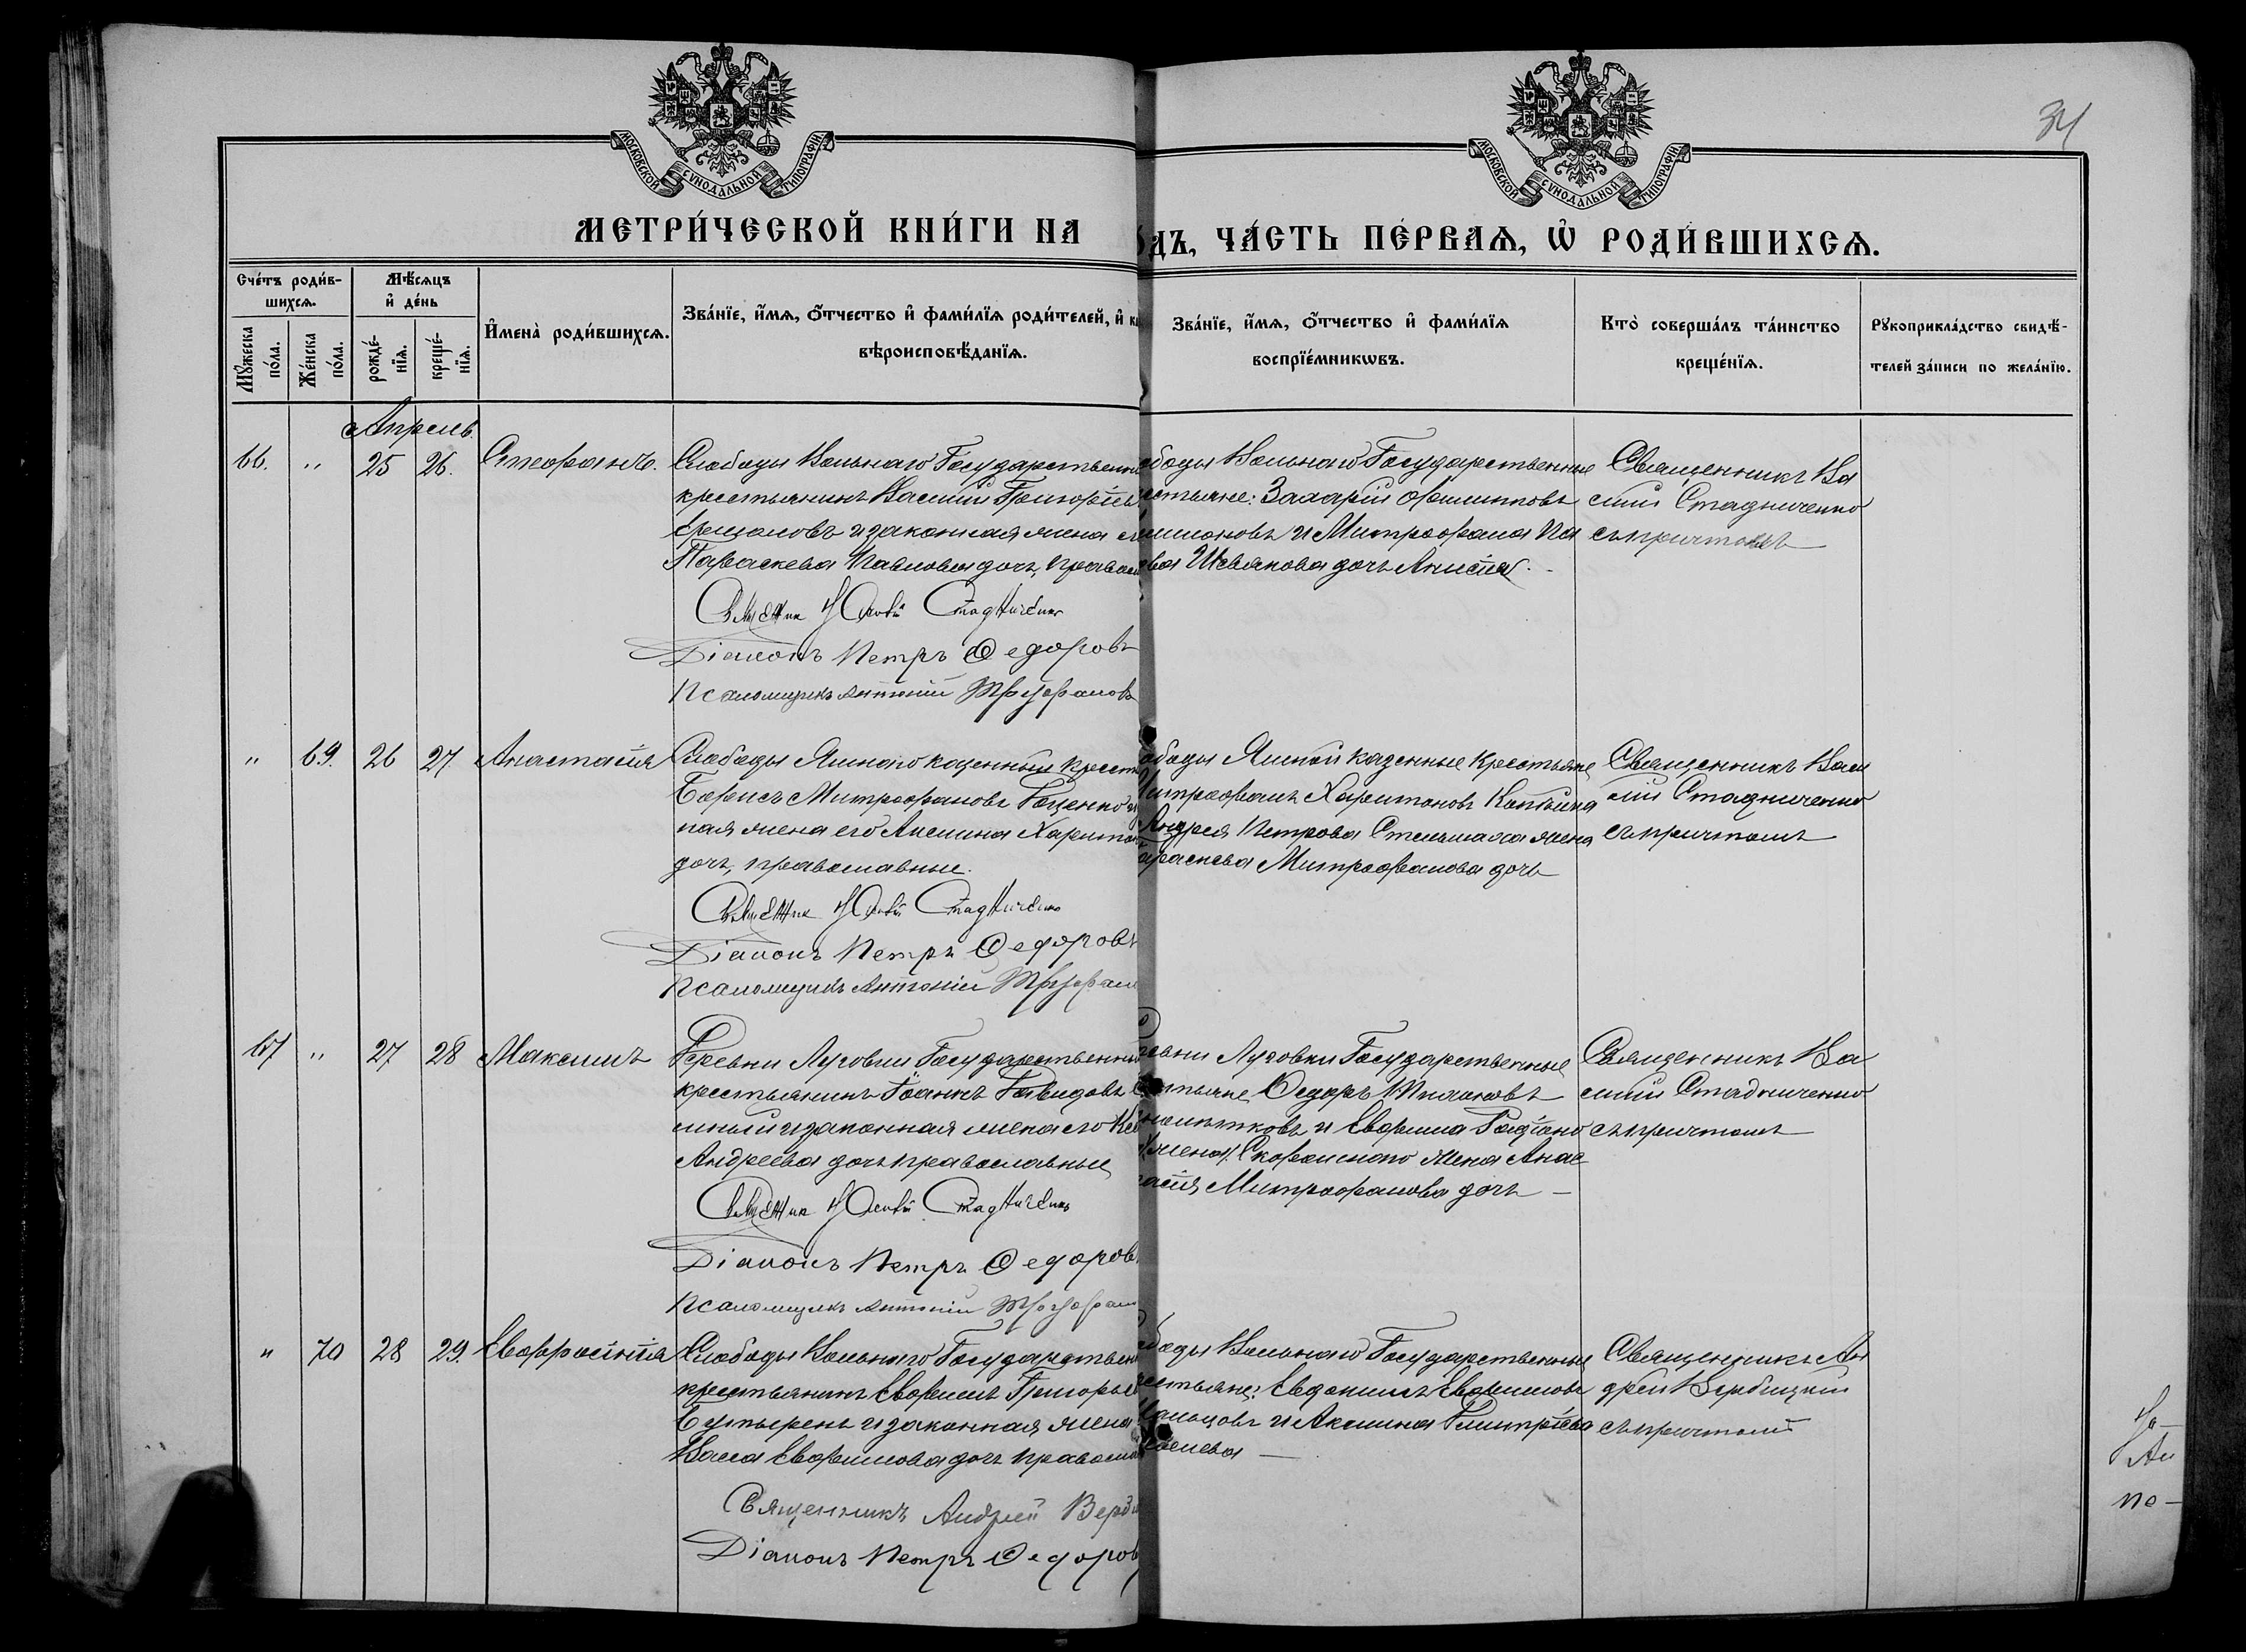 34
МОСКОВСКОЙ СѴНОДАЛЬНОЙ ТИПОГРАФІИ
МОСКОВСКОЙ СѴНОДАЛЬНОЙ ТИПОГРАФІИ
МЕТРИ́ЧЕСКОЙ КНИ́ГИ НА
ДЪ, ЧА́СТЬ ПЕ́РВАѦ, Ѡ РОДИ́ВШИХСѦ.
Сче́тъ роди́в-
шихсѧ.
Мꙋ́жеска по́ла.
Же́нска по́ла.
Мѣ́сѧцъ
и҆ де́нь
рожде́-
нїѧ.
креще́-
нїѧ.
И҆мена̀ роди́вшихсѧ.
Зва́нїе, и҆́мѧ, ѻ҆́тчество и҆ фами́лїѧ роди́телей, и҆
вѣроисповѣ́данїѧ.
Зва́нїе, и҆́мѧ, ѻ҆́тчество и҆ фами́лїѧ
воспрїе́мникѡвъ.
Кто̀ соверша́лъ та́инство
креще́нїѧ.
Рꙋкоприкла́дство свидѣ́-
телей за́писи по жела́нїю.
Апрель.
66. " 25 26. Стефанъ.
Слободы Вольнаго Государственн
крестьянинъ Василій Григорьев
и законная жена
Параскева Павлова дочь, правосл
Священник Іаковъ Стадниченко
Діаконъ Петръ Ѳедоровъ
Псаломщикъ Антоній Труфановъ
боды Вольнаго Государственные
стьяне: Захарій Филипповъ
и Митрофана Па
ва Шевякова дочь Анисія.
Священникъ Ва
силій Стадниченко
съ причтомъ
" 69. 26 27 Анастасія
Слободы Ямного казенный крест
Борисъ Митрофановъ Гоценко
ная жена его Акилина Харитон
дочь, православные.
Священник Іаковъ Стадниченко
Діаконъ Петръ Ѳедоровъ
Псаломщикъ Антоній Труфан
боды Ямной казенные крестьяне
Митрофанъ Харитоновъ
Андрея Петрова Стельмаха жена
араскева Митрофанова дочь
Священникъ Васи
лій Стадниченко
съ причтомъ
67 " 27 28 Максимъ
Деревни Луговки Государственный
крестьянинъ Іоаннъ Давидовъ
и законная жена его
Андреева дочь православные
Священник Іаковъ Стадниченко
Діаконъ Петръ Ѳедоров
Псаломщикъ Антоній Труфан
ревни Луговки Государственные
стьяне Ѳедоръ
и Евфимія
жена Анас
тасія Митрофанова дочь
Священникъ Ва
силій Стадниченко
съ причтомъ
" 70 28 29. Евфросинія
Слободы Вольнаго Государствен
крестьянинъ Евфимъ Григорьев
Бутыренъ и законная жена
Васса Евфимова дочь правосла
Священникъ Андрей Верби
Діаконъ Петръ Ѳедоров
боды Вольнаго Государственные
стьяне: Евдокимъ Евфимовъ
и Акилина Димитріева
Священникъ Ан
дрей Вербицкій
съ причтомъ
Ан
по